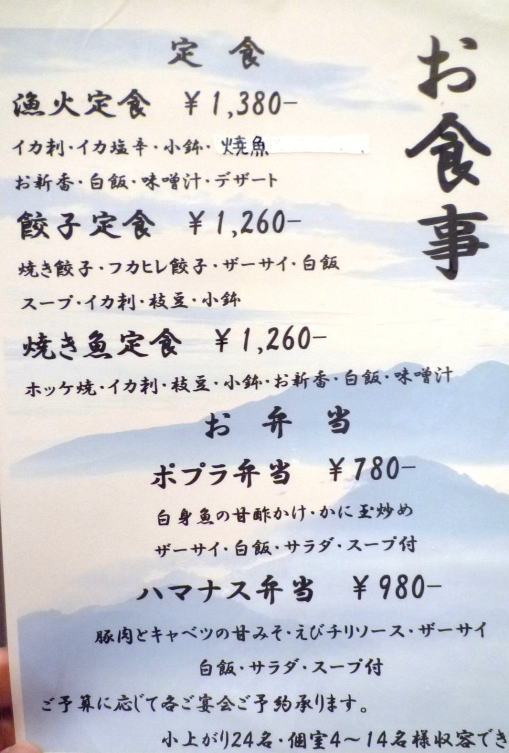 お食事
定食
漁火定食 ¥1,380-
イカ刺・イカ塩辛・小鉢・焼魚
お新香・白飯・味噌汁・デザート
餃子定食 ¥1,260-
焼き餃子・フカヒレ餃子・ザーサイ・白飯
スープ・イカ刺・枝豆・小鉢
焼き魚定食 ¥1,260-
ホッケ焼・イカ刺・枝豆・小鉢・お新香・白飯・味噌汁
お弁当
ポプラ弁当 ¥780-
白身魚の甘酢かけ・かに玉炒め
ザーサイ・白飯・サラダ・スープ付
ハマナス弁当 ¥980-
豚肉とキャベツの甘みそ・えびチリソース・ザーサイ
白飯・サラダ・スープ付
ご予算に応じて各ご宴会ご予約承ります。
小上がり24名・個室4～14名様収容でき